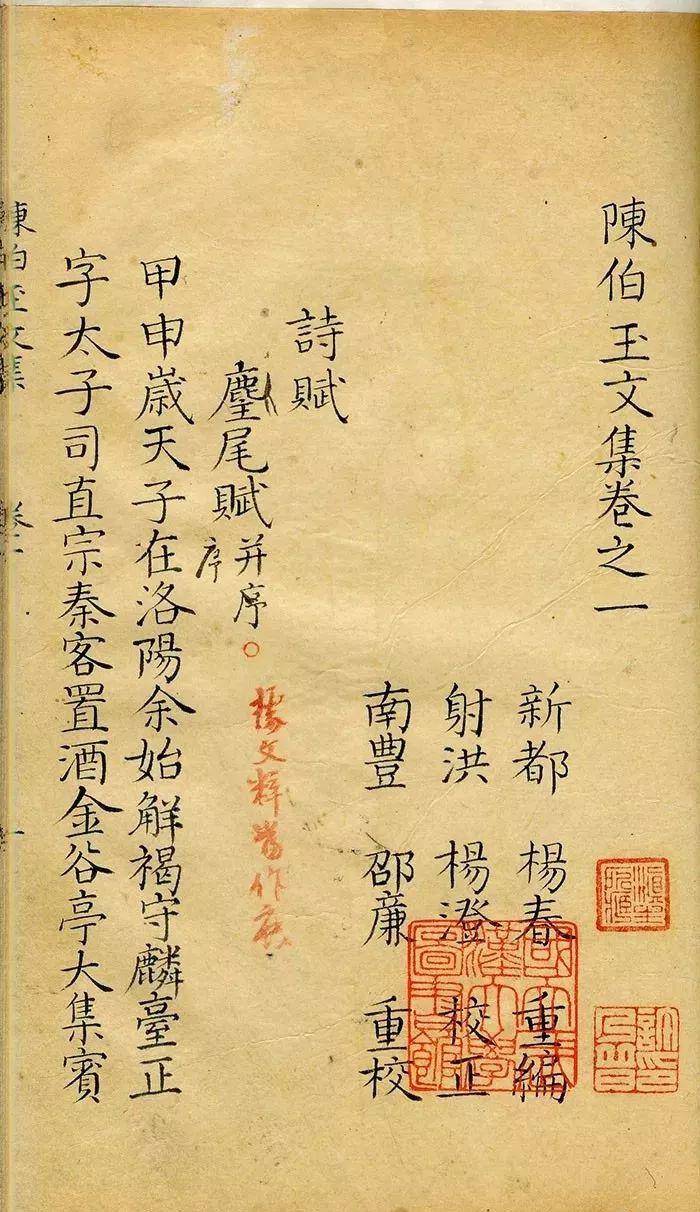 陳伯玉文集卷之一
新都 楊春 重編
射洪 楊澄 校正
南豐 邵廉 重校
詩賦
麈尾賦并序
序
據文粹當作
甲申嵗天子在洛陽余始解褐守麟臺正
字太子司直宗秦客置酒金谷亭大集賓
陳伯玉文集 卷一 一
國立武漢大學圖書館